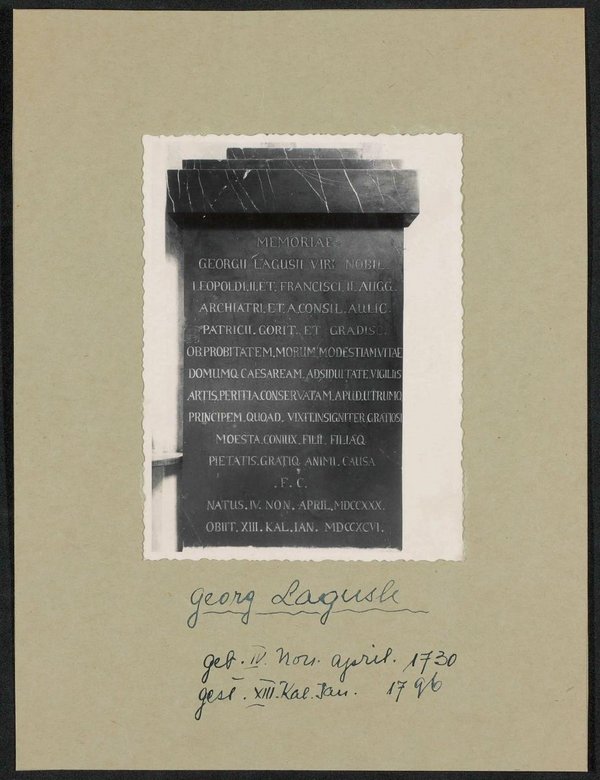 MEMORIAE
GEORGII LAGUSII VIRI NOBIL
LEOPOLDI.II.ET. FRANCISCI II. AUGG.
ARCHIATRI. ET. A. CONSIL. AULIC.
PATRICII. GORIT. ET GRADISC.
OB.PROBITATEM, MORUM, MODESTIAM, VITAE
DOMUMQ. CAESAREAM. ADSIDUITATE. VIGILIIS
ARTIS, PERITIA. CONSERVATAM, APUD, UTRUMQ
PRINCIPEM, QUOAD, VIXIT, INSIGNITER, GRATIOSI
MOESTA. CONIUX, FILII, FILIAQ
PIETATIS. GRATIQ ANIMI. CAUSA
.F. C.
NATUS. IV. NON. APRIL. MDCCXXX.
OBIIT. XIII. KAL. IAN. MDCCXCVI.
Georg Lagusk
geb. IV. Non. April. 1730
gest. XIII. Kal. Jan. 1796